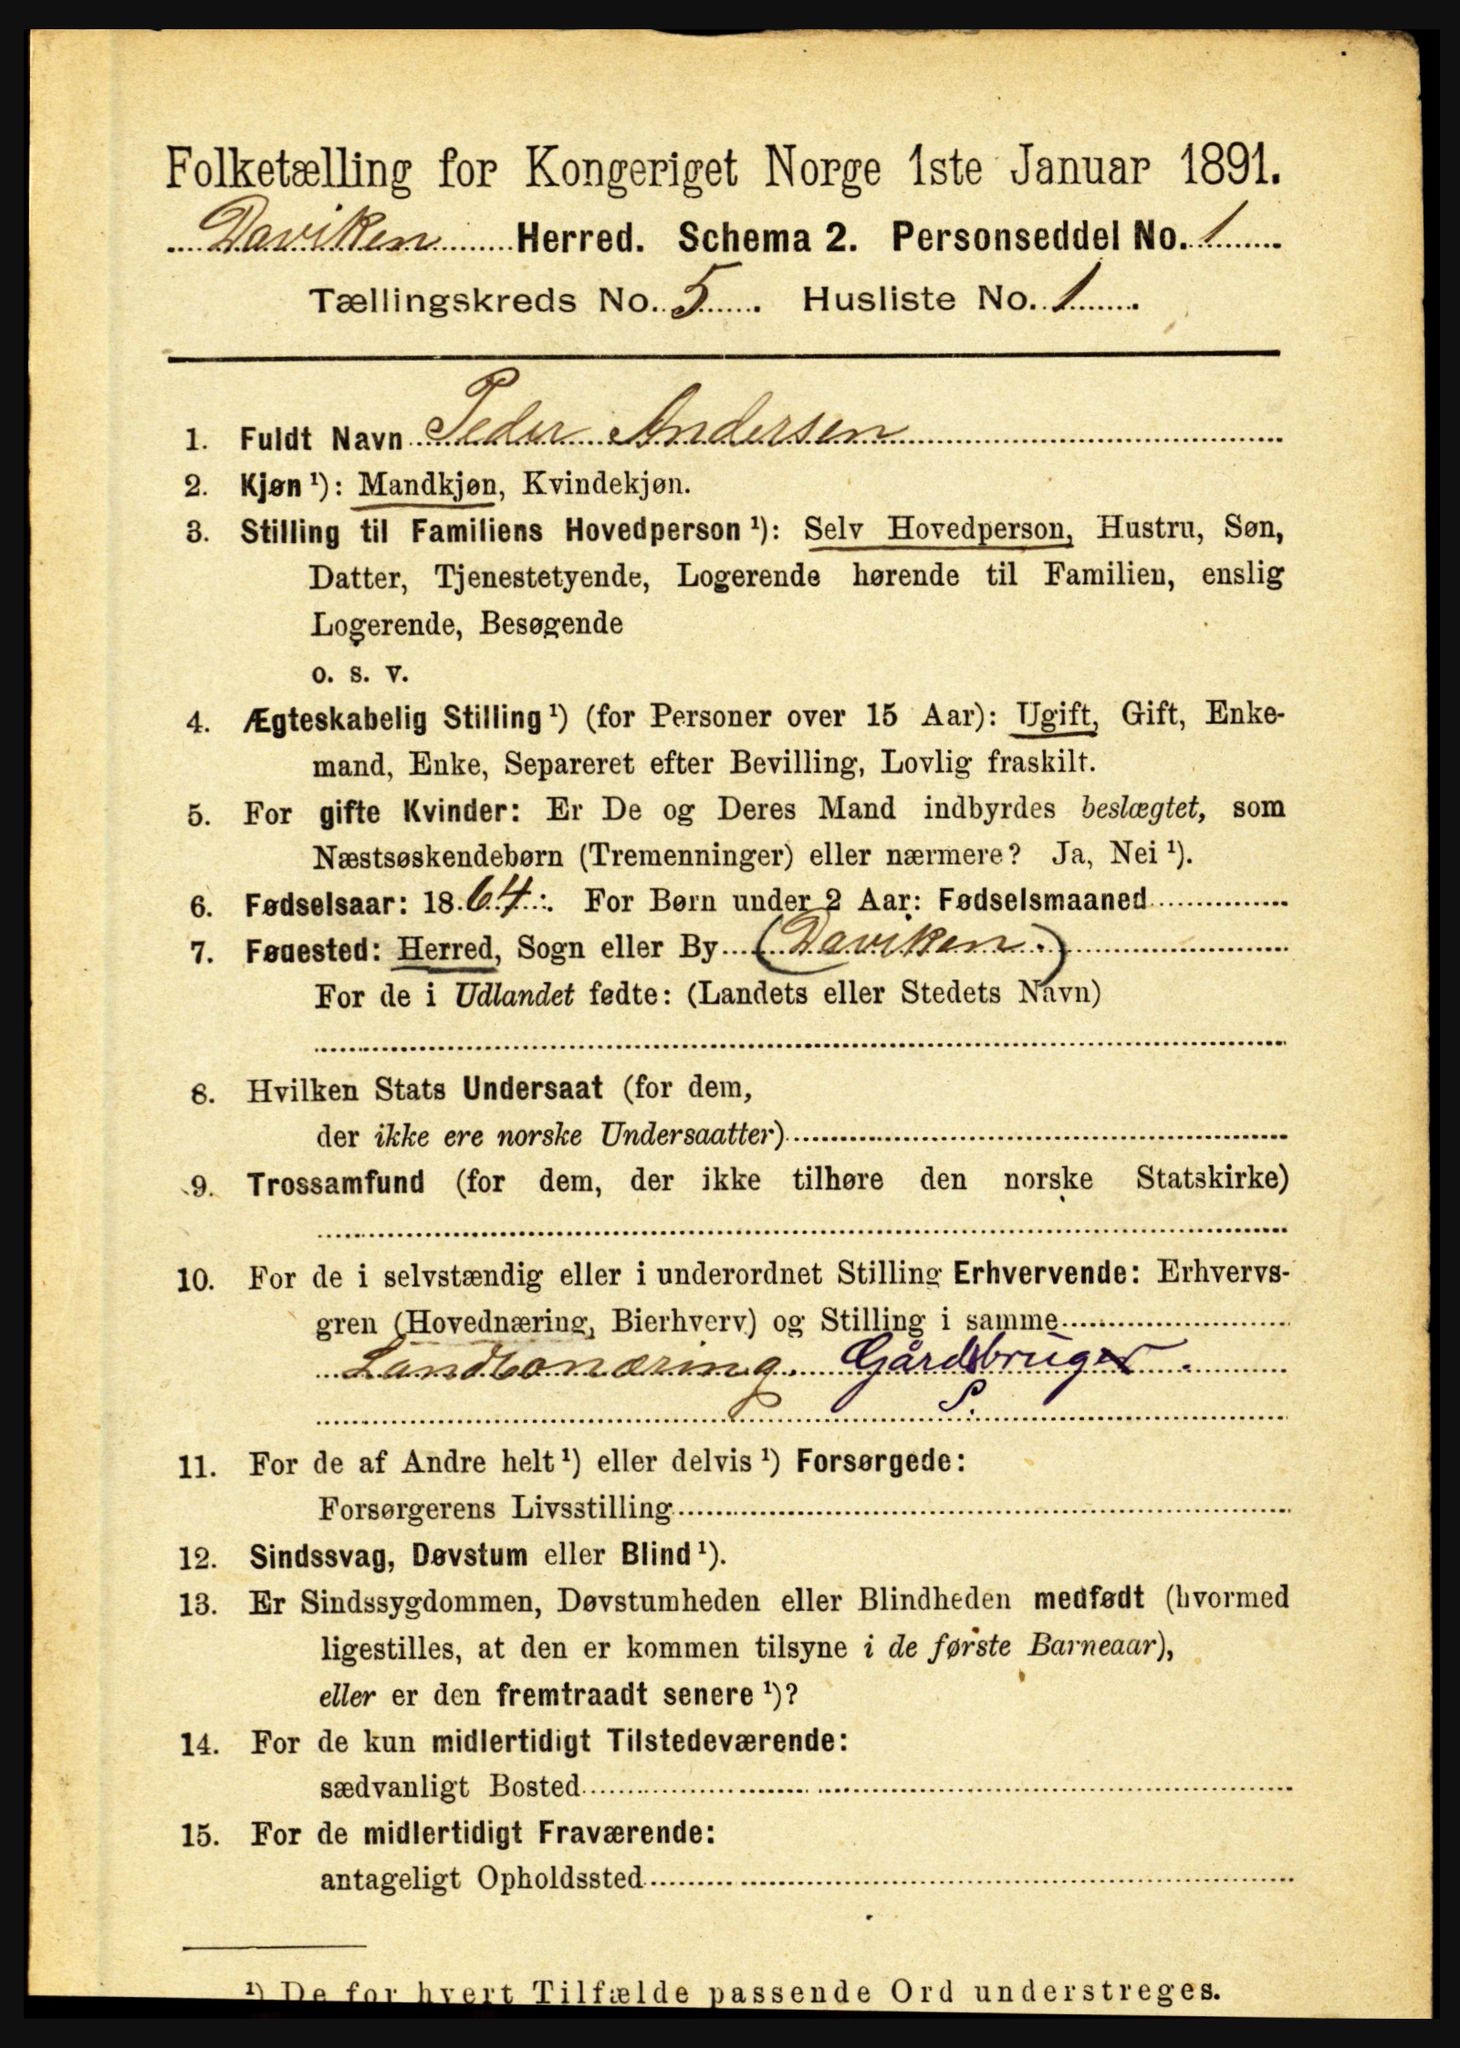 Folketælling for Kongeriget Norge 1ste Januar 1891.
Daviken Herred. Schema 2. Personseddel No. 1
Tællingskreds No. 5. Husliste No. 1.
1. Fuldt Navn Peder Andersen
2. Kjøn ¹): Mandkjøn, Kvindekjøn.
3. Stilling til Familiens Hovedperson ¹): Selv Hovedperson, Hustru, Søn,
Datter, Tjenestetyende, Logerende hørende til Familien, enslig
Logerende, Besøgende
o. s. v.
4. Ægteskabelig Stilling ¹) (for Personer over 15 Aar): Ugift, Gift, Enke-
mand, Enke, Separeret efter Bevilling, Lovlig fraskilt.
5. For gifte Kvinder: Er De og Deres Mand indbyrdes beslægtet, som
Næstsøskendebørn (Tremenninger) eller nærmere? Ja, Nei ¹).
6. Fødselsaar: 1864. For Børn under 2 Aar: Fødselsmaaned
7. Fødested: Herred, Sogn eller By (Daviken.)
For de i Udlandet fødte: (Landets eller Stedets Navn)
8. Hvilken Stats Undersaat (for dem,
der ikke ere norske Undersaatter)
9. Trossamfund (for dem, der ikke tilhøre den norske Statskirke)
10. For de i selvstændig eller i underordnet Stilling Erhvervende: Erhvervs-
gren (Hovednæring, Bierhverv) og Stilling i samme
Landbonæring. Gårdsbruger.
S.
11. For de af Andre helt ¹) eller delvis ¹) Forsørgede:
Forsørgerens Livsstilling
12. Sindssvag, Døvstum eller Blind ¹).
13. Er Sindssygdommen, Døvstumheden eller Blindheden medfødt (hvormed
ligestilles, at den er kommen tilsyne i de første Barneaar),
eller er den fremtraadt senere ¹)?
14. For de kun midlertidigt Tilstedeværende:
sædvanligt Bosted
15. For de midlertidigt Fraværende:
antageligt Opholdssted
¹) De for hvert Tilfælde passende Ord understreges.